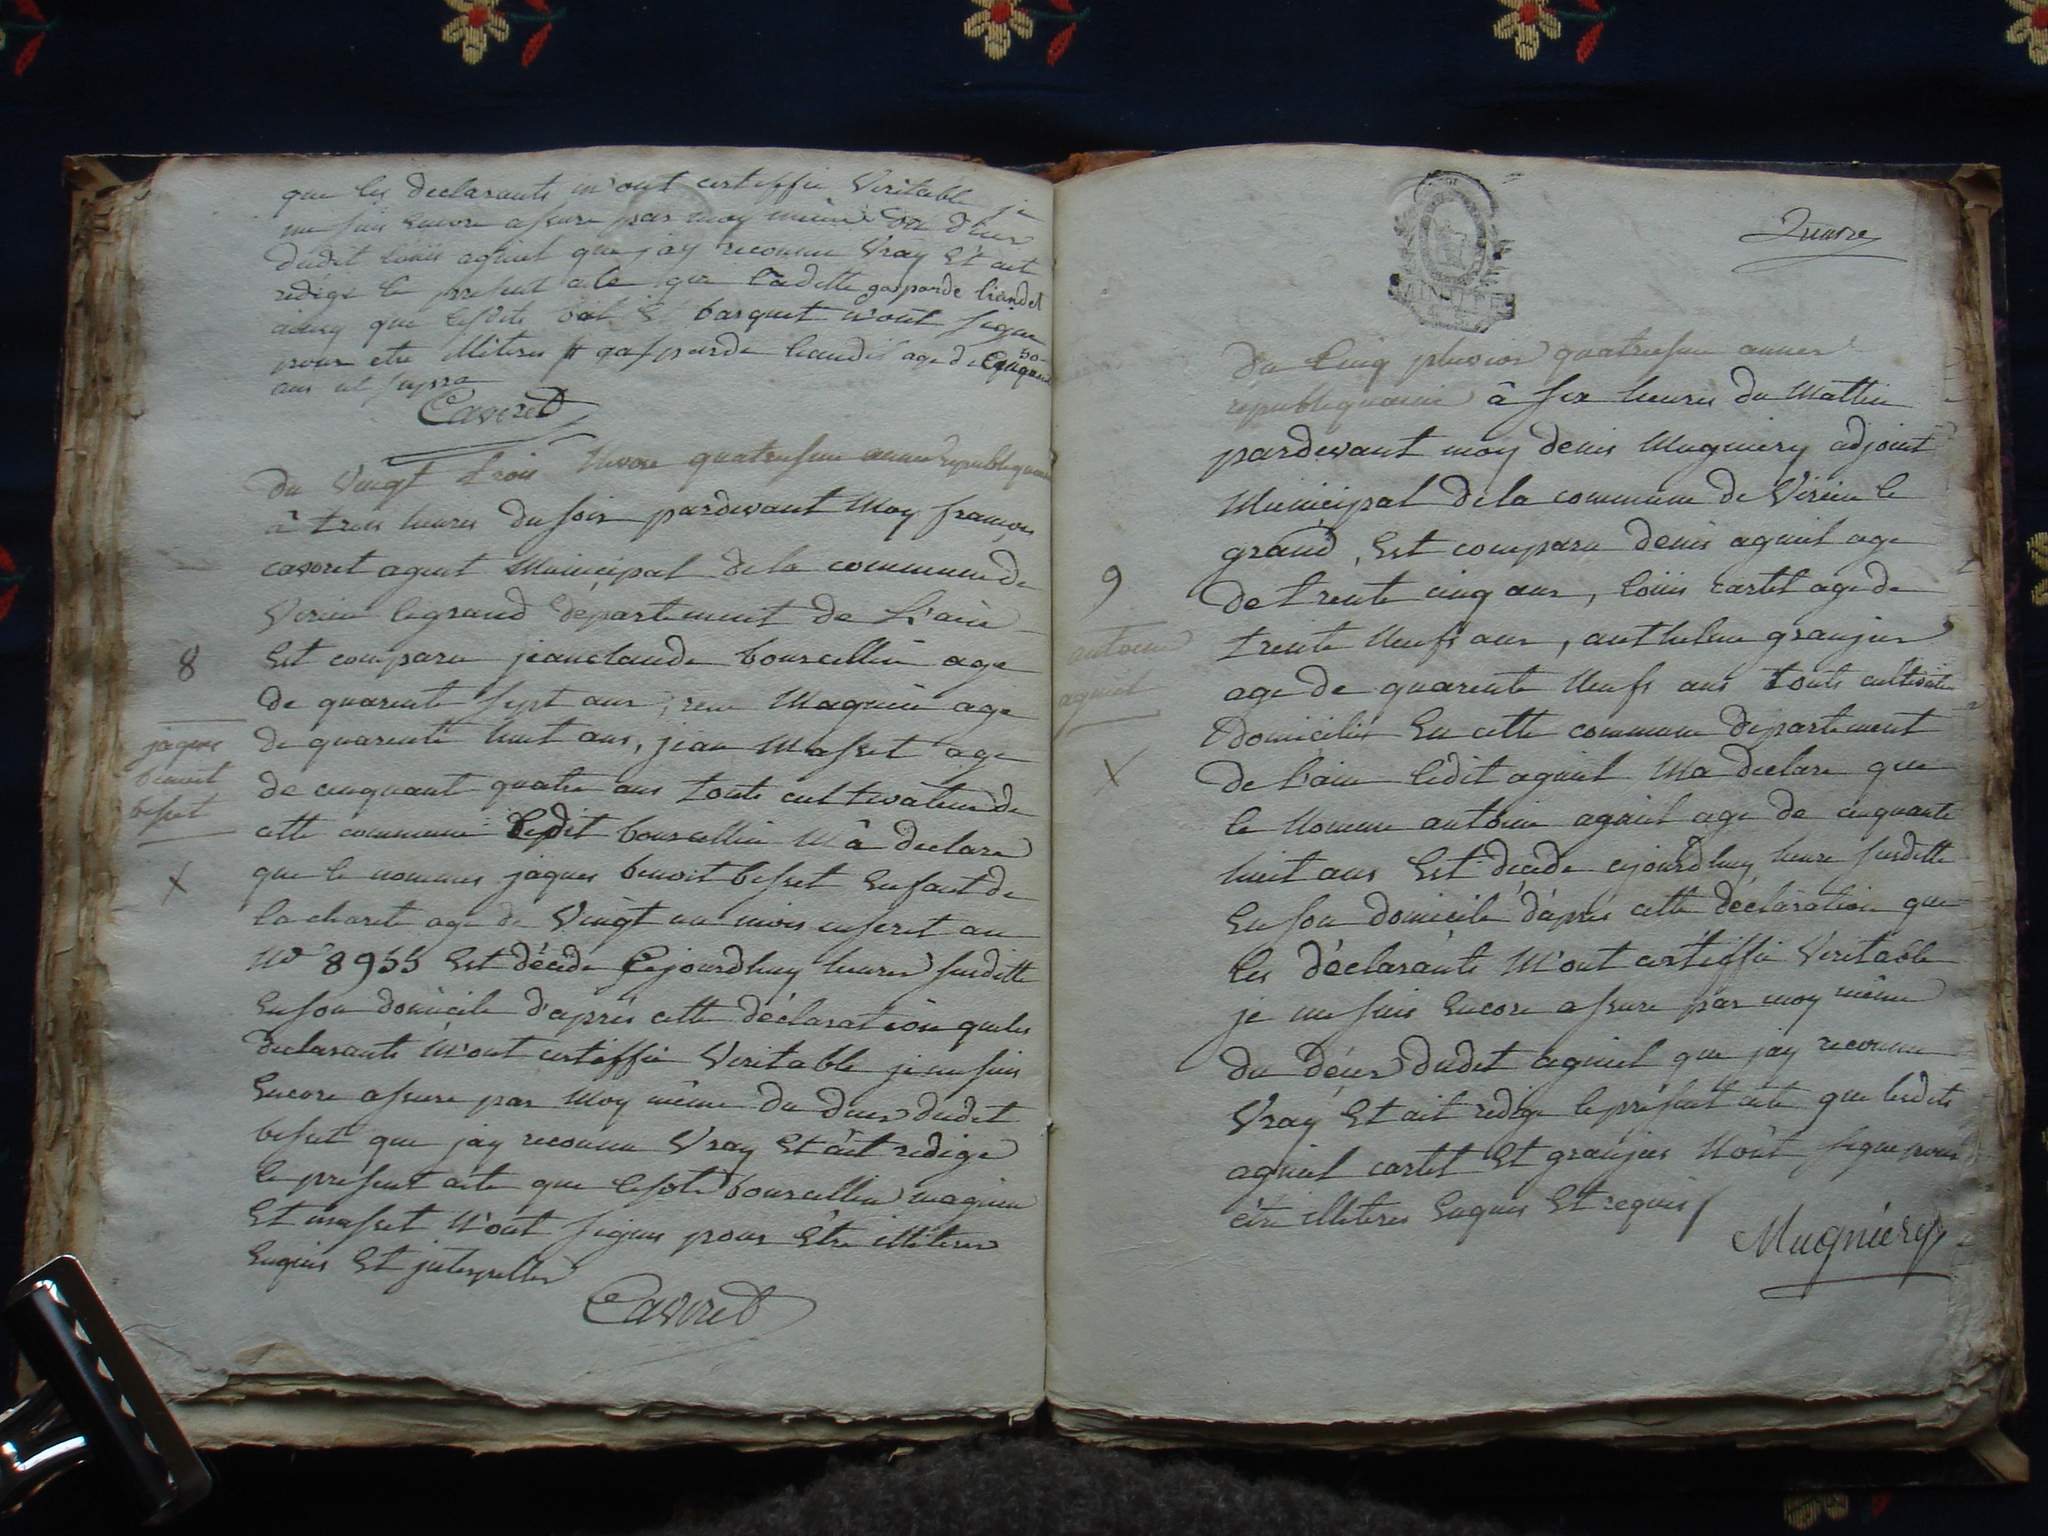 que les declarants m'ont certiffie Veritable je
me suis Encore assure par moy mème du deces
dudit louis agniel que jay reconnu Vray Et ait
redige le present acte que ladelle gasparde liandet
aincy que lesdits barquet n'ont signe
pour etre illiteres # gasparde liandet age de 50
ans ut supra
Cavoret
du Vingt trois Nivose quatriesme annee republiquaine
â trois heures du soir pardevant Moy francois
cavoret agent Municipal de la commune de
Virieu le grand département de L'ain
8
Est comparu jeanclaude bourcellin age
de quarente sept ans, rene Magnin age
de quarente huit ans, jean Masset age
jaques
benoit
besset
X
de cinquant quatre ans touts cultivateurs de
cette commune Ledit bourcellin M'â declare
que le nommes jaques benoit besset Enfant de
la charet age de Vingt un mois enseret au
No 8955 Est décéde Cejourdhuy heures susditte
En son domicile d'aprés cette déclaration que les
declarants M'ont certiffie Veritable je me suis
Encore assure par Moy mème du deces dudit
besset que jay reconnu Vray Et ait redige
le present acte que lesdts bourcellin magnin
Et masset N'ont signes pour Etre illiteres
Enquis Et jnterpelles
Cavoret
MINUTE
Du Cinq pluviose quatriesme annee
republiquaine â six heures du Mattin
pardevant moy denis Mugniery adjoint
Municipal de la commune de Virieu le
grand, Est comparu denis agniel age
9
de trente cinq ans, loüis cartet age de
antoine
agniel
X
trente Neufs ans, anthelme granjer
age de quarente Neufs ans touts cultivateurs
domicilies En cette commune departement
de l'ain ledit agniel Ma declare que
le Nomme antoine agniel age de cinquante
huit ans Est décéde cejourdhuy heure susditte
En son domicile d'aprés cette déclaration que
les déclarants M'ont certiffie Veritable
je me suis Encore assure par moy mème
du déces dudit agniel que jay reconnu
Vray Et ait redige le présent acte que lesdits
agniel cartet Et granjer N'ont signe pour
être illiteres Enquis Et requis /
Mugniery